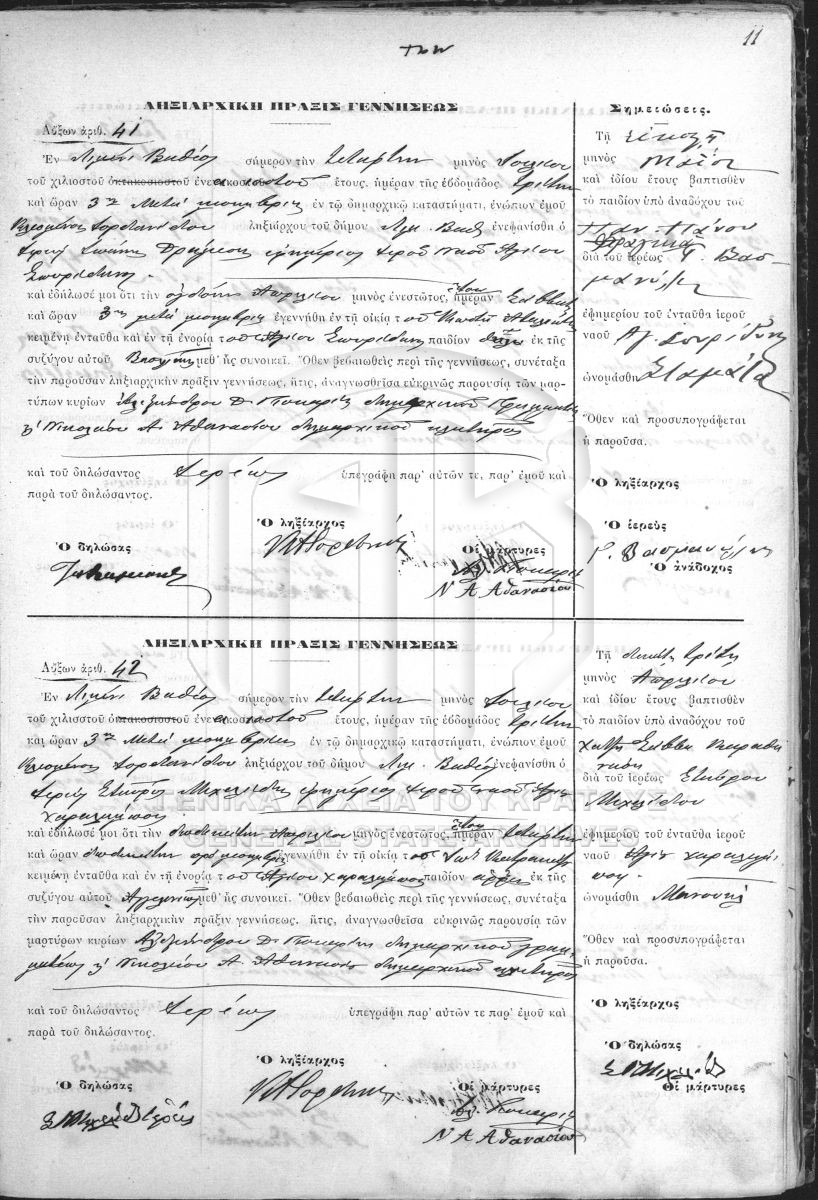 11
ΛΗΞΙΑΡΧΙΚΗ ΠΡΑΞΙΣ ΓΕΝΝΗΣΕΩΣ
Αὔξων ἀριθ. 41
Ἐν Λιμένι Βαθέος σήμερον τὴν τετάρτην μηνὸς Ἰουλίου
τοῦ χιλιοστοῦ ὀκτακοσιοστοῦ ἐνεακοσιοστοῦ ἔτους, ἡμέραν τῆς ἑβδομάδος τρίτην
καὶ ὥραν 3ην μετὰ μεσημβρίαν ἐν τῷ δημαρχικῷ καταστήματι, ἐνώπιον ἐμοῦ
ληξιάρχου τοῦ δήμου Λιμ. Βαθ. ἐνεφανίσθη ὁ
ἱερεὺς Ἰωάννης ἐφημέριος ἱεροῦ ναοῦ Ἁγίου
Σπυρίδωνος
καὶ ἐδήλωσέ μοι ὅτι τὴν ὀγδόην Ἀπριλίου μηνὸς ἐνεστῶτος, ἔτους ἡμέραν Σάββατον
καὶ ὥραν 3ην μετὰ μεσημβρίαν ἐγεννήθη ἐν τῇ οἰκίᾳ τοῦ
κειμένῃ ἐνταῦθα καὶ ἐν τῇ ἐνορίᾳ τοῦ Ἁγίου Σπυρίδωνος παιδίον θῆλυ ἐκ τῆς
συζύγου αὐτοῦ μεθ' ἧς συνοικεῖ. Ὅθεν βεβαιωθεὶς περὶ τῆς γεννήσεως, συνέταξα
τὴν παροῦσαν ληξιαρχικὴν πρᾶξιν γεννήσεως, ἥτις, ἀναγνωσθεῖσα εὐκρινῶς παρουσίᾳ τῶν μαρ-
τύπων κυρίων Ἀλεξάνδρου Δ. δημαρχικοῦ γραμματέως
& Νικολάου Α. Ἀθανασίου δημαρχικοῦ κλητῆρος
καὶ τοῦ δηλώσαντος ἱερέως ὑπεγράφη παρ' αὐτῶν τε, παρ' ἐμοῦ καὶ
παρὰ τοῦ δηλώσαντος.
Ὁ ληξίαρχος
Ὁ δηλώσας
Οἱ μάρτυρες
Ν Α Αθανασίου
Σημειώσεις.
Τῇ εἰκοστῇ
μηνὸς Μαΐου
καὶ ἰδίου ἔτους βαπτισθὲν
τὸ παιδίον ὑπὸ ἀναδόχου τοῦ
διὰ τοῦ ἱερέως Γ. Βασ-
μανώλη
ἐφημερίου τοῦ ἐνταῦθα ἱεροῦ
ναοῦ Ἁγ. Σπυρίδωνος
ὠνομάσθη Σταμάτα
Ὅθεν καὶ προσυπογράφεται
ἡ παροῦσα.
Ὁ ληξίαρχος
Ὁ ἱερεὺς
Ὁ ἀνάδοχος
ΛΗΞΙΑΡΧΙΚΗ ΠΡΑΞΙΣ ΓΕΝΝΗΣΕΩΣ
Αὔξων ἀριθ. 42
Ἐν Λιμένι Βαθέος σήμερον τὴν τετάρτην μηνὸς Ἰουλίου
τοῦ χιλιοστοῦ ὀκτακοσιοστοῦ ἐνεακοσιοστοῦ ἔτους, ἡμέραν τῆς ἑβδομάδος τρίτην
καὶ ὥραν 3ην μετὰ μεσημβρίαν ἐν τῷ δημαρχικῷ καταστήματι, ἐνώπιον ἐμοῦ
ληξιάρχου τοῦ δήμου Λιμ. Βαθέος ἐνεφανίσθη ὁ
ἱερεὺς Σταῦρος Μιχαηλίδης ἐφημέριος ἱεροῦ ναοῦ Ἁγίου
Χαραλάμπους
καὶ ἐδήλωσέ μοι ὅτι τὴν δωδεκάτην Ἀπριλίου μηνὸς ἐνεστῶτος, ἔτους ἡμέραν τετάρτην
καὶ ὥραν δωδεκάτην πρὸ μεσημβρίας ἐγεννήθη ἐν τῇ οἰκίᾳ τοῦ
κειμένῃ ἐνταῦθα καὶ ἐν τῇ ἐνορίᾳ τοῦ Ἁγίου Χαραλάμπους παιδίον ἄρρεν ἐκ τῆς
συζύγου αὐτοῦ μεθ' ἧς συνοικεῖ. Ὅθεν βεβαιωθεὶς περὶ τῆς γεννήσεως, συνέταξα
τὴν παροῦσαν ληξιαρχικὴν πρᾶξιν γεννήσεως. ἥτις, ἀναγνωσθεῖσα εὐκρινῶς παρουσίᾳ τῶν
μαρτύρων κυρίων Ἀλεξάνδρου Δ. δημαρχικοῦ γραμ-
ματέως & Νικολάου Α. Ἀθανασίου δημαρχικοῦ κλητῆρος
καὶ τοῦ δηλώσαντος ἱερέως ὑπεγράφη παρ' αὐτῶν τε παρ' ἐμοῦ καὶ
παρὰ τοῦ δηλώσαντος.
Ὁ ληξίαρχος
Ὁ δηλώσας
Οἱ μάρτυρες
Ν Α Αθανασίου
Τῇ δεκάτῃ τρίτῃ
μηνὸς Ἀπριλίου
καὶ ἰδίου ἔτους βαπτισθὲν
τὸ παιδίον ὑπὸ ἀναδόχου τοῦ
Χατζῆ Σάββα
διὰ τοῦ ἱερέως Σταύρου
Μιχαηλίδου
ἐφημερίου τοῦ ἐνταῦθα ἱεροῦ
ναοῦ Ἁγίου Χαραλάμ-
πους
ὠνομάσθη Μανουήλ
Ὅθεν καὶ προσυπογράφεται
ἡ παροῦσα.
Ὁ ληξίαρχος
Ὁ δηλώσας
Οἱ μάρτυρες
ΓΕΝΙΚΑ ΑΡΧΕΙΑ ΤΟΥ ΚΡΑΤΟΥΣ
GENERAL STATE ARCHIVES